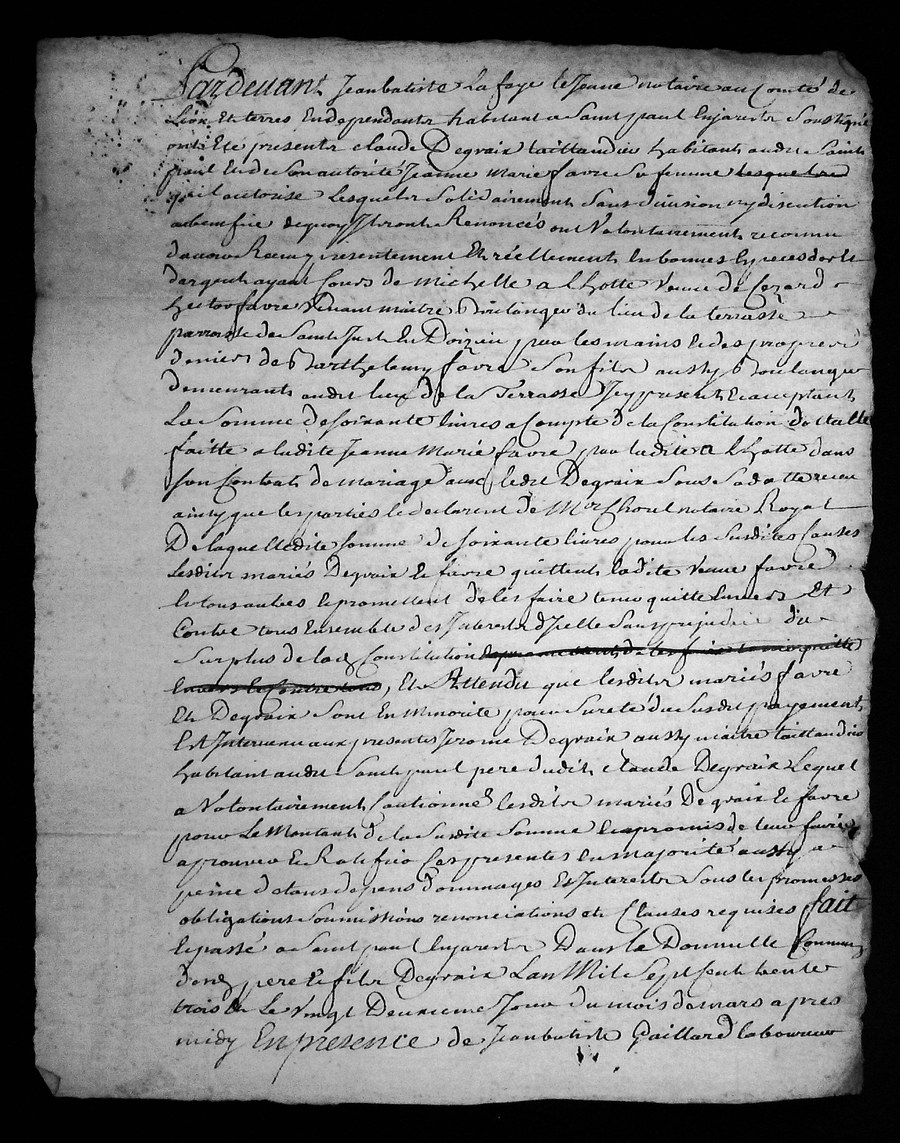 Pardevant Jeanbatiste Lafaye le Jeune notaire au Comté de
Lion Et terres En dependants habitant a Saint paul Enjarests Soussigné
ont Ete presents claude Degraix taillandier habitant audit Saint
paul Et de Son autorité Jeanne Marie favre Sa femme lesquels
qu'il autorise Lesquels Solidairement Sans division ny discution
au benefice dequoy Ils ont Renoncés ont Volontairement reconnu
d'avoir Receu presentement Et réellement En bonnes Especes d'or Et
d'argent ayant Cours de Michelle a Lhotte Veuve de Cezard
hector favre Vivant maitre Boulanger du lieu de la terrasse
parroisse de Saint Just En Doizieu par les mains Et des propres
deniers de Barthelemy favre Son fils aussy Boulanger
demeurants audit lieu de la Terrasse Icy present Et acceptant
La Somme de soixante livres a Compte de la Constitution dotalle
faitte a ladite Jeanne Marie favre par ladite a Lhotte dans
son Contrat de mariage avec ledit Degraix Sous Sa datte receu
ainsy que les parties le declarent de Me Chorel notaire Royal
De laquelle dite somme de soixante livres pour les Susdites Causes
lesdits mariés Degraix Et favre quittent ladite Veuve favre
Et tous autres Et promettent de les faire tenir quitte Envers Et
Contre tous Ensemble des Interests d'Icelle Sans prejudice du
Surplus de lad Constitution et promettent de les faire tenir quitte
Envers Et Contre tous, Et Attendu que lesdits mariés favre
Et Degraix Sont En Minorité pour Sureté du Susdit payement
Est Intervenu aux presentes Jerome Degraix aussy maitre taillandier
habitant audit Saint paul pere dudit claude Degraix Lequel
a Volontairement Cautionné lesdits mariés Degraix Et favre
pour Le Montant de la Susdite Somme Et a promis de leur faire
aprouver Et Ratifier Ces presentes En majorité aussy a
peine de tous depens dommages Et Interests Sous les promesses
obligations Soumissions renonciations Et Clauses requises fait
Et passé a Saint paul Enjarests Dans le Domicille Commun
desd pere Et fils Degraix L'an Mil Sept Cent trente
trois Et Le Vingt Deuxieme Jour du mois de mars apres
midy En presence de Jeanbatiste Gaillard laboureur